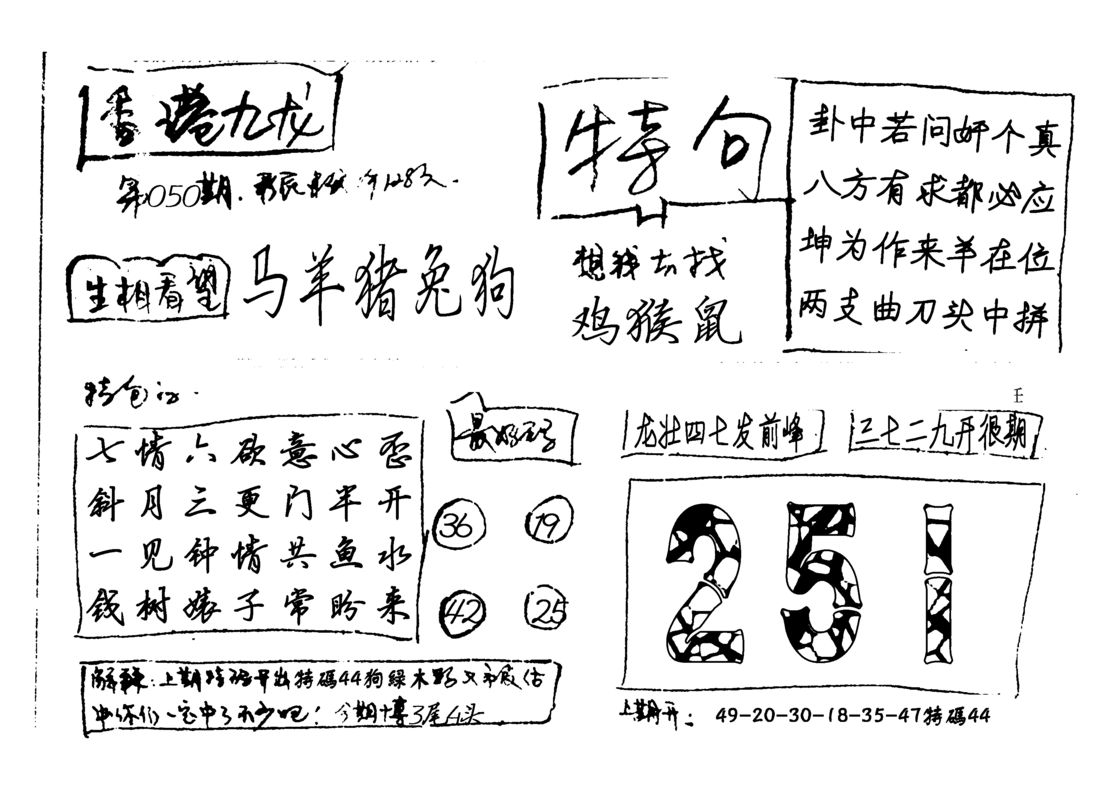 香港九龙
第050期.
生相看望 马羊猪兔狗
特句
想钱去找
鸡猴鼠
卦中若问奸个真
八方有求都必应
坤为作来羊在位
两支曲刀头中拼
特包
七情六欲意心歪
斜月三更门半开
一见钟情共鱼水
钱树婊子常盼来
最好
36 19
42 25
王
龙壮四七发前峰
三七二九开很期
251
解: 上期特码开出特碼44狗绿木野
中你们一定中了不少吧! 今期博3尾4头
上期开: 49-20-30-18-35-47特碼44